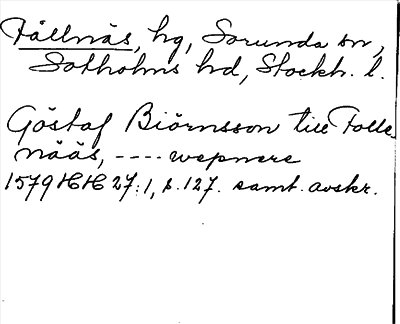 Fållnäs, hg, Sorunda sn,
Sotholms hd, Stockh. l.
Göstaf Biörnsson till Folle
nääs, ---- wepnere
1579 HH 27:1, s. 127. samt. avskr.